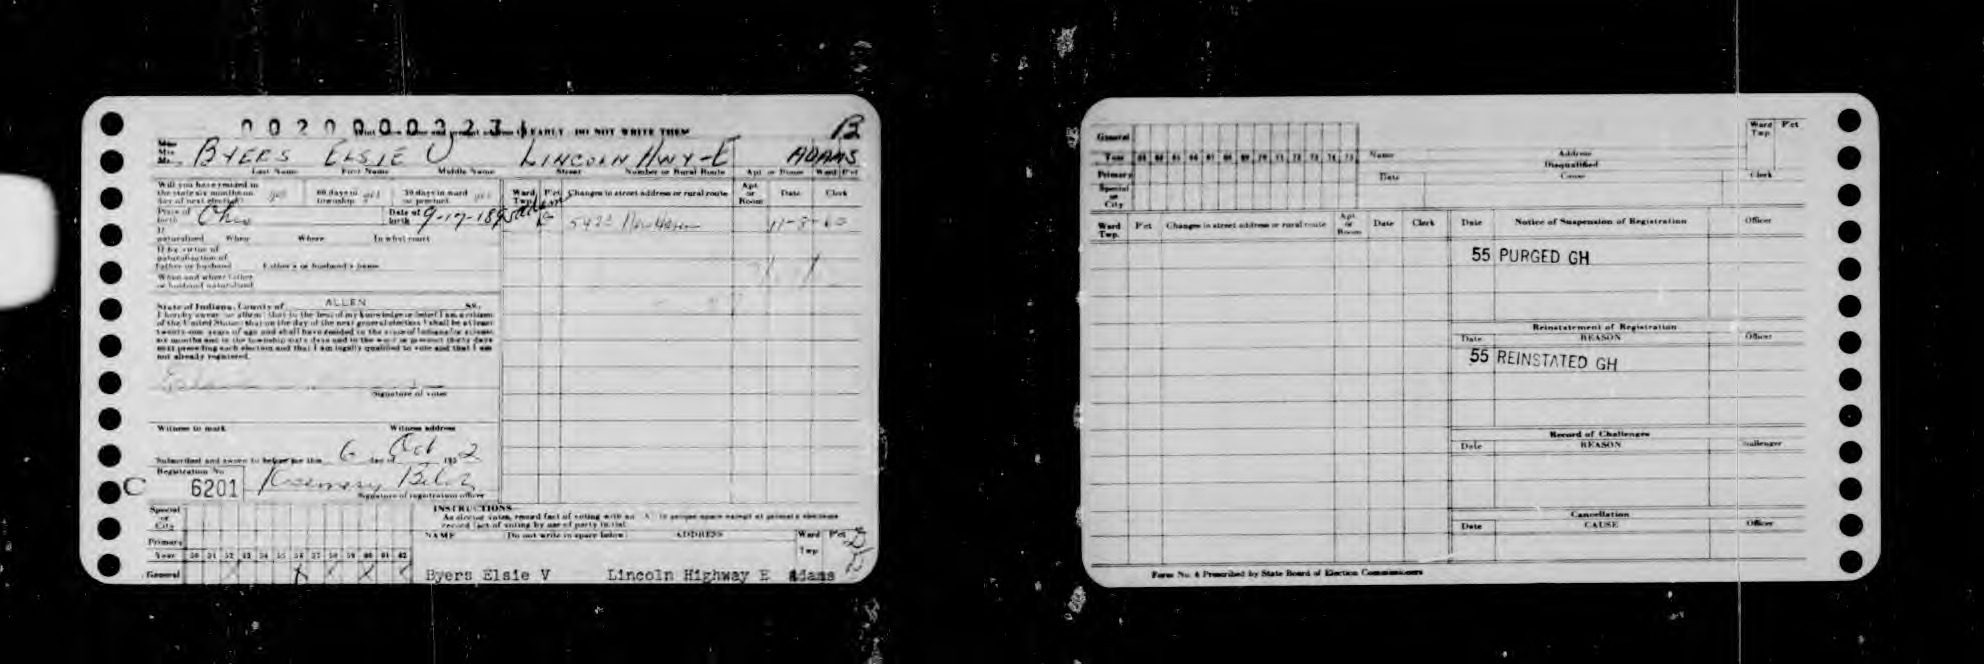 0 0 2 0 0 0 0 2 2 3 1 CLEARLY DO NOT WRITE THEM
B
Miss
Mrs
Mr.
BYERS ELSIE V LINCOLN HWY-E ADAMS
Last Name First Name Middle Name Street Number or Rural Route Apt or Room Ward Pct
Will you have resided in
the state six months on yes 60 days in yes 30 days in ward yes
day of next election township or precinct
Ward Twp. Pct Changes in street address or rural route Apt. or Room Date Clerk
Place of birth Ohio Date of birth 9-17-18 Adams
New Haven 11-3-60
If
naturalized When Where In what court
If by virtue of
naturalization of
Father or husband Father's or husband's name
When and where father
or husband naturalized
State of Indiana, County of ALLEN SS.
I hereby swear or affirm that to the best of my knowledge or belief I am a citizen
of the United States; that on the day of the next general election I shall be at least
twenty-one years of age and shall have resided in the state of Indiana for at least
six months and in the township sixty days and in the ward or precinct thirty days
next preceding such election and that I am legally qualified to vote and that I am
not already registered.
Signature of voter
Witness to mark Witness address
Subscribed and sworn to before me this 6 day of Oct 1952
Registration No
C 6201 Rosemary
Signature of registration officer
Special
or
City
Primary
Year 50 51 52 53 54 55 56 57 58 59 60 61 62
General X X X X X
INSTRUCTIONS
As elector votes, record fact of voting with an X in proper space except at primary elections
record fact of voting by use of party initial
NAME (Do not write in space below) ADDRESS Ward Pct
Twp
Byers Elsie V Lincoln Highway E Adams
General
Year 63 64 65 66 67 68 69 70 71 72 73 74 75
Primary
Special
or
City
Name Address
Disqualified
Date Cause Clerk
Ward Pct
Twp.
Ward Twp. Pct Changes in street address or rural route Apt. or Room Date Clerk
Date Notice of Suspension of Registration Officer
55 PURGED GH
Reinstatement of Registration
Date REASON Officer
55 REINSTATED GH
Record of Challenges
Date REASON Challenger
Cancellation
Date CAUSE Officer
Form No. 4 Prescribed by State Board of Election Commissioners